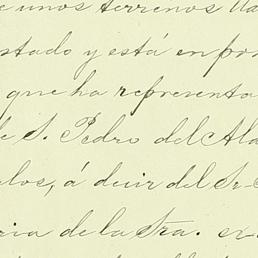 e unos terrenos da
stado y está en por
que ha representa
de S. Pedro del Ala
los, á decir del Sr
ria de la Sra.